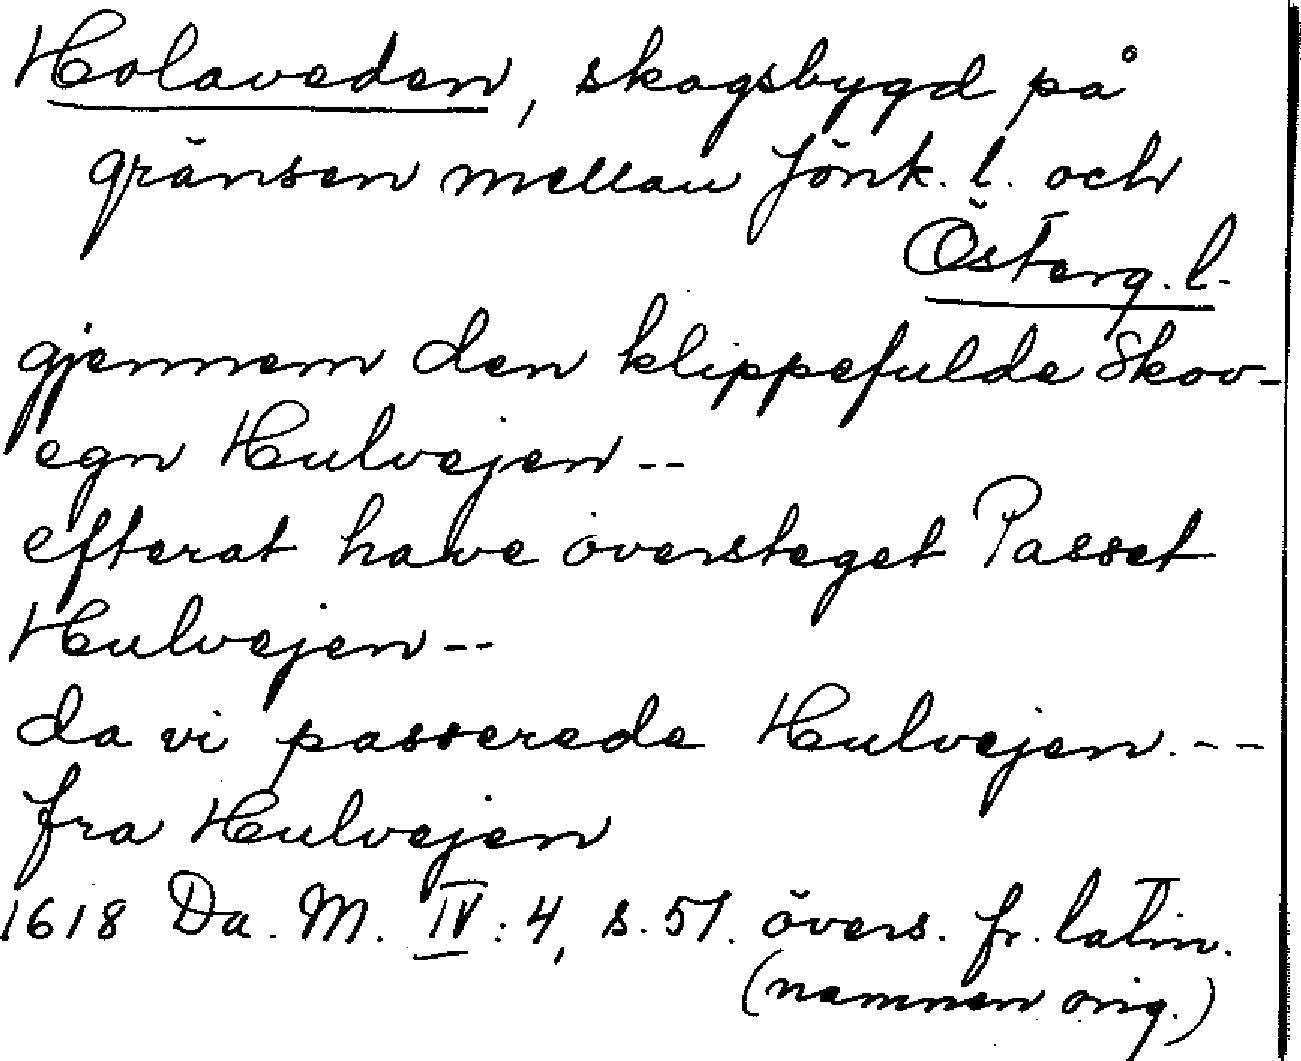 Holaveden, skogsbygd på
gränsen mellan Jönk. l. och
Österg. l.
gjennem den klippefulde Skov-
egn Hulvejen --
efterat have oversteget Passet
Hulvejen --
da vi passerede Hulvejen. --
fra Hulvejen
1618 Da. M. IV: 4, s. 51. övers. fr. latin.
(namnen orig.)